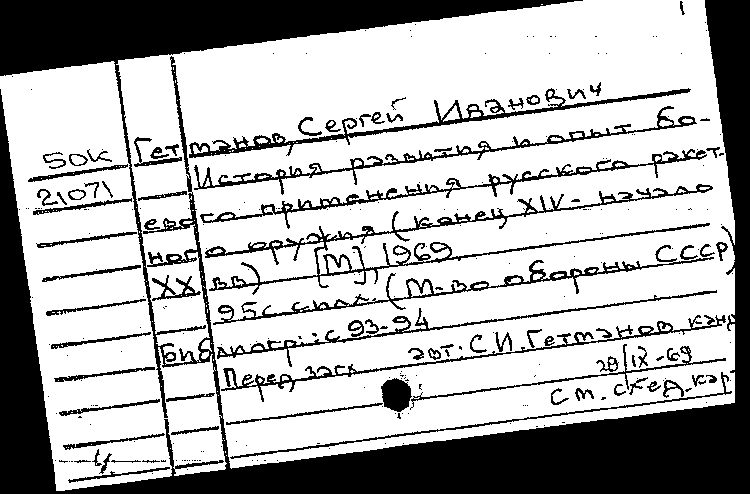 1
50К Гетманов, Сергей Иванович
21071 История развития и опыт бо-
евого применения русского ракет-
ного оружия (конец XIV - начало
XX вв) [М], 1969.
95с. с илл. (М-во обороны СССР)
Библиогр.: с 93-94
Перед загл. авт: С.И. Гетманов, канд
28/IX-69
см. след. кар
4